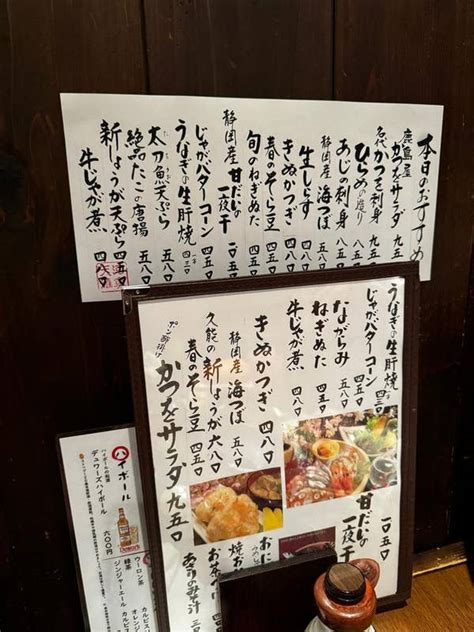 本日のおすすめ
鹿島屋
かつをサラダ 九五〇
名代
かつを刺身 九五〇
ひらめの造り
あじの刺身 八五〇
静岡産
海つぼ 五八〇
生しらす
きぬかつぎ 四八〇
春のそら豆 四五〇
旬のねぎぬた
静岡産
甘だいの
一夜干 一〇五〇
うなぎの生肝焼
じゃがバターコーン 四三〇
太刀魚天ぷら 五八〇
絶品たこの唐揚 五八〇
新しょうが天ぷら 四五〇
牛じゃが煮 四八〇
うなぎの生肝焼
じゃがバターコーン 四三〇
ながらみ 五八〇
ねぎぬた
牛じゃが煮 四八〇
きぬかつぎ 四八〇
静岡産
海つぼ 五八〇
久能の
新しょうが 六八〇
春のそら豆 四五〇
ポン酢掛け
かつをサラダ 九五〇
甘だいの
一夜干 一〇五〇
おに
焼お
お茶
あさりのみそ汁
ハイボール
デュワーズハイボール
六〇〇
ウーロン茶
緑茶
ジンジャーエール
カルピ
オレンジ